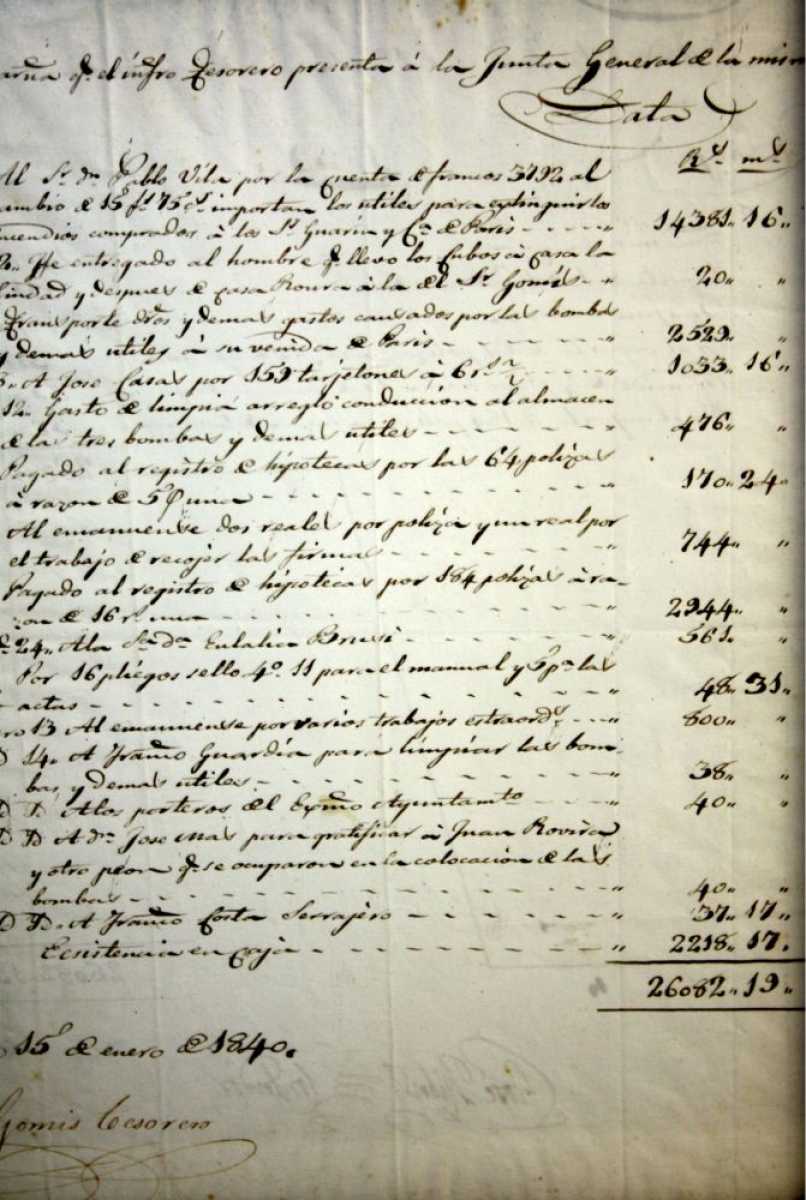 q.e el infro Tesorero presenta à la Junta General de la
Data
R.s m.s
Al S.r dn Pablo Vila por la cuenta de francos 3792 al
de 15 f.s 75 c.s importan los utiles para extinguir los
comprados à los S.s Guarin y C.a de Paris - - - - „ 14381„ 16„
He entregado al hombre q.e llevo los Cubos à casa la
y despues de casa Roura à la del S.r Gomis - „ 20„ „
Transporte dros y demas gastos causados por las bombas
y demas utiles à su venida de Paris - - - - „ 2529„ „
A Jose Casas por 159 tarjetones à 6 - - - - „ 1033„ 16„
12„ Gasto de limpia arreglo conduccion al almacen
de las tres bombas y demas utiles - - - - „ 476„ „
Pagado al registro de hipotecas por las 64 polizas
à razon de una - - - - „ 170„ 24„
Al emanuense dos reales por poliza y un real por
el trabajo de recojer las firmas - - - - „ 744„ „
Pagado al registro de hipotecas por 184 polizas à ra-
zon de 16 r.s una - - - - „ 2944„ „
24„ A la S.ra d.a Eulalia Brusi - - - - „ 561„ „
Por 16 pliegos sello 4.o 11 para el manual y 5 p.a las
actas - - - - „ 48„ 31„
13 Al emanuense por varios trabajos estraord.s - - - „ 800„ „
14„ A Fran.co Guardia para limpiar las bom-
bas, y demas utiles - - - - „ 38„ „
A los porteros del Ex.mo Ayuntam.to - - - - „ 40„ „
A d.n Jose Mas para gratificar à Juan Rovira
y otro peon q.e se ocuparon en la colocacion de las
bombas - - - - „ 40„ „
A Fran.co Costa Serrajero - - - - „ 37„ 17„
Ecsistencia en caja - - - - „ 2218„ 17„
26082„ 19„
15 de enero de 1840.
Gomis Tesorero